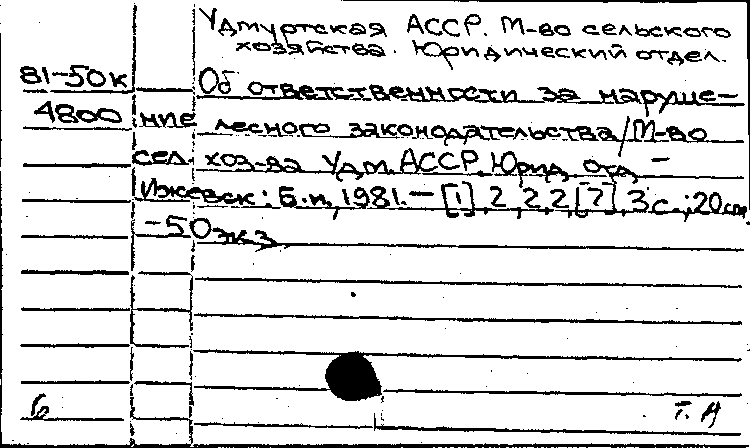 Удмуртская АССР. М-во сельского
хозяйства. Юридический отдел.
81-50к Об ответственности за наруше-
4800 ние лесного законодательства/М-во
сел. хоз-ва Удм. АССР. Юрид. отд. -
Ижевск: Б.и., 1981. - [1], 2, 2, 2, [7], 3 с.; 20 см.
-50 экз.
6 т. А